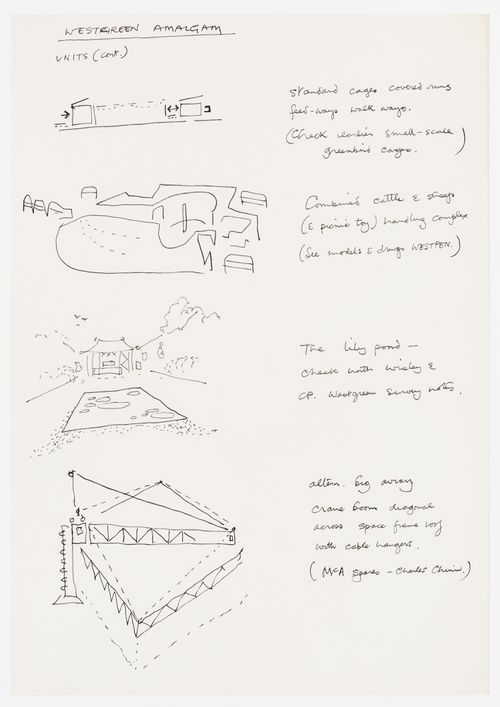 WESTGREEN AMALGAM
UNITS (cont.)
Standard cages covered runs
feed-ways walk ways.
(Check earlier small-scale
greenbird cages.)
Combined cattle & sheep
(& picnic toy) handling complex
(See models & drwgs WESTPEN.)
The lily pond –
check with Wisley &
CP. Westgreen Survey notes.
altern. big aviary
crane boom diagonal
across space frame roof
with cable hangers.
(McA spares – Charles